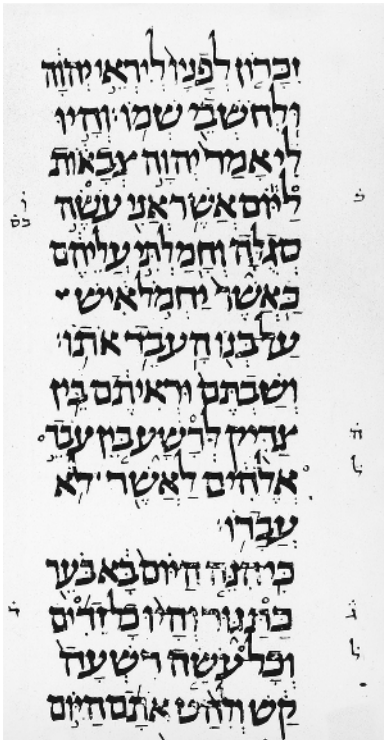 זכרון לפניו ליראי יהוה
ולחשבי שמו׃ והיו
לי אמר יהוה צבאות
ליום אשר אני עשה
סגלה וחמלתי עליהם
כאשר יחמל איש
על בנו העבד אתו׃
ושבתם וראיתם בין
צדיק לרשע בין עבד
אלהים לאשר לא
עבדו׃
כי הנה היום בא בער
כתנור והיו כל זדים
וכל עשה רשעה
קש ולהט אתם היום